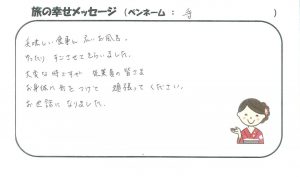 旅の幸せメッセージ（ペンネーム： 寺 ）
美味しい食事、広いお風呂。
ゆったりすごさせてもらいました。
大変な時ですが 従業員の皆さま
お身体に気をつけて 頑張ってください。
お世話になりました。